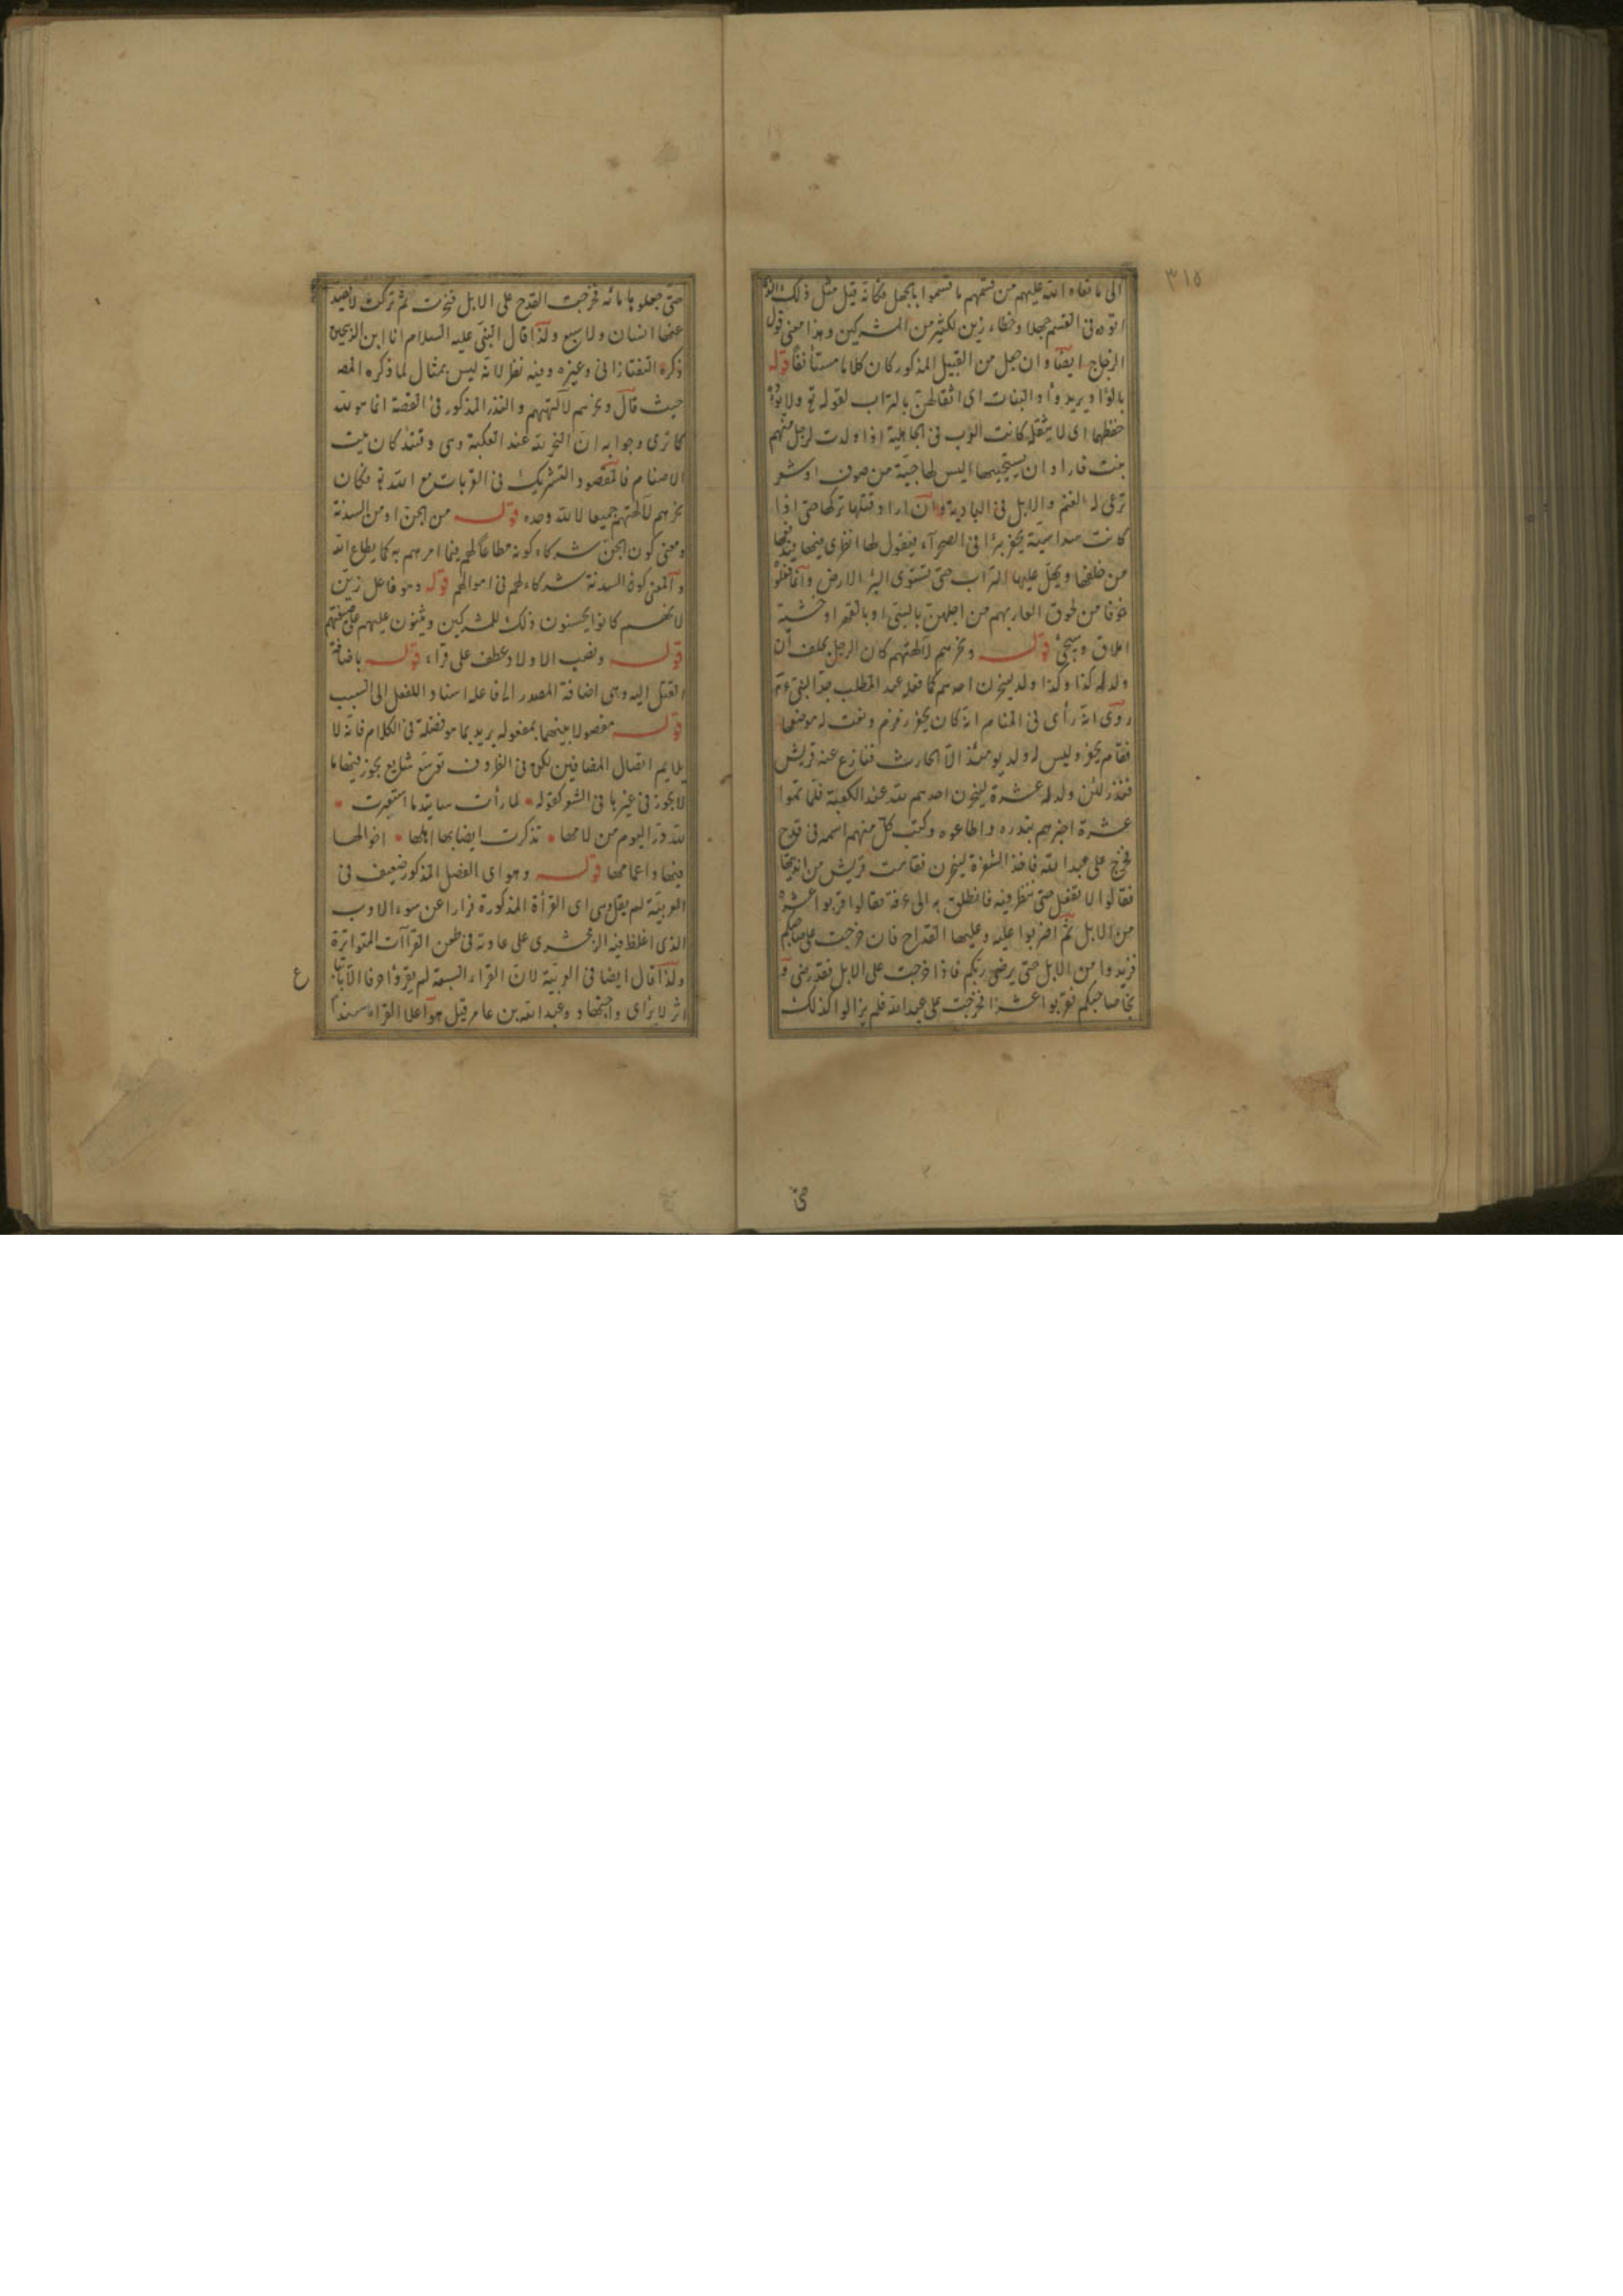 ٣١٥
الى ما نعاه الله عليهم من قسمهم ما قسموا بالجهل فكانه قيل مثل ذلك الذى
اتوه فى القسم جهلا وخطاء زين لكثير من المشركين وهذا معنى قول
الزجاج ايضا وان جعل من القبيل المذكور كان كلاما مستأنفا قوله
بالوأد يريد وأد البنات اى اثقالهن بالتراب لقوله تع ولا يؤده
حفظهما اى لا يثقله كانت العرب فى الجاهلية اذا ولدت لرجل منهم
بنت فاراد ان يستحييها البس لها جبة من صوف او شعر
ترعى له الغنم والابل فى البادية وان اراد قتلها تركها حتى اذا
كانت سداسية يحفر بئرا فى الصحرآء فيقول لها انظرى فيها فيدفعها
من خلفها ويهيل عليها التراب حتى تستوى البئر الارض وانما فعلوا
خوفا من لحوق العار بهم من اجلهن بالسبى او بالفقر او خشية
املاق وسيجئ قوله ونحرهم لآلهتهم كان الرجل يحلف ان
ولد له كذا وكذا ولد لينحرن احدهم كما فعله عبد المطلب جد النبى عم
روى انه رأى فى المنام انه كان يحفر زمزم ونعت له موضعها
فقام يحفر وليس له ولد يومئذ الا الحارث فنازع عنه قريش
فنذر لئن ولد له عشرة لينحرن احدهم لله عند الكعبة فلما تموا
عشرة اخبرهم بنذره واطاعوه وكتب كل منهم اسمه فى قدح
فخرج على عبد الله فاخذ الشفرة لينحرن فقامت قريش من انديتها
فقالوا لا تفعل حتى ننظر فيه فانطلق به الى عرافة فقالوا قربوا عشرة
من الابل ثم اضربوا عليه وعليها القداح فان خرجت على صاحبكم
فزيدوا من الابل حتى يرضى ربكم فاذا خرجت على الابل فقد رضى و
نجا صاحبكم فقربوا عشرا فخرجت على عبد الله فلم يزالوا كذلك
حتى
حتى جعلوها مائه فخرجت القدح على الابل فنحرت ثم تركت لا يصد
عنها انسان ولا سبع ولذا قال النبى عليه السلام انا ابن الذبيحين
ذكره التفتازانى وغيره وفيه نظر لانه ليس بمثال لما ذكره المصـ
حيث قال ونحرهم لآلهتهم والنذر المذكور فى القصة انما هو لله
كما ترى وجوابه ان النحر لله عند الكعبة وهى وقتئذ كان بيت
الاصنام فالمقصود التشريك فى القربات مع الله تع فكان
نحرهم لآلهتهم جميعا لا لله وحده قوله من الجن او من السدنة
ومعنى كون الجن شركاء كونه مطاعا لهم فيما امرهم به كما يطاع الله
والمعنى كون السدنة شركاء لهم فى اموالهم قوله وهو فاعل زين
لانهم كانوا يحسنون ذلك للمشركين ويثنون عليهم على صنيعتهم
قوله ونصب الاولاد عطف على قراء قوله باضافة
القتل اليه وهى اضافة المصدر الى فاعله اسناد اللفعل الى السبب
قوله مفصولا بينهما بمفعوله يريد بما هو فضلة فى الكلام فانه لا
يلايم اتصال المضافين لكن فى الظروف توسع شايع يجوز فيها ما
لا يجوز فى غيرها فى الشعر كقوله * لما رأت ساتيدما استعبرت *
لله در اليوم من لامها * تذكرت ايضا بها اهلها * اخوالها
فيها واعمامها قوله وهو اى الفصل المذكور ضعيف فى
العربية لم يقل وهى اى القرأة المذكورة فرارا عن سوء الادب
الذى اغلظ فيه الزمخشرى على عادته فى طعن القراآت المتواترة
ولذا قال ايضا فى العربية لان القراء السبعة لم يقرؤا حرفا الا باتباع
اثر لا برأى واجتهاد وعبد الله بن عامر قيل هو اعلا القراء سندا
ع